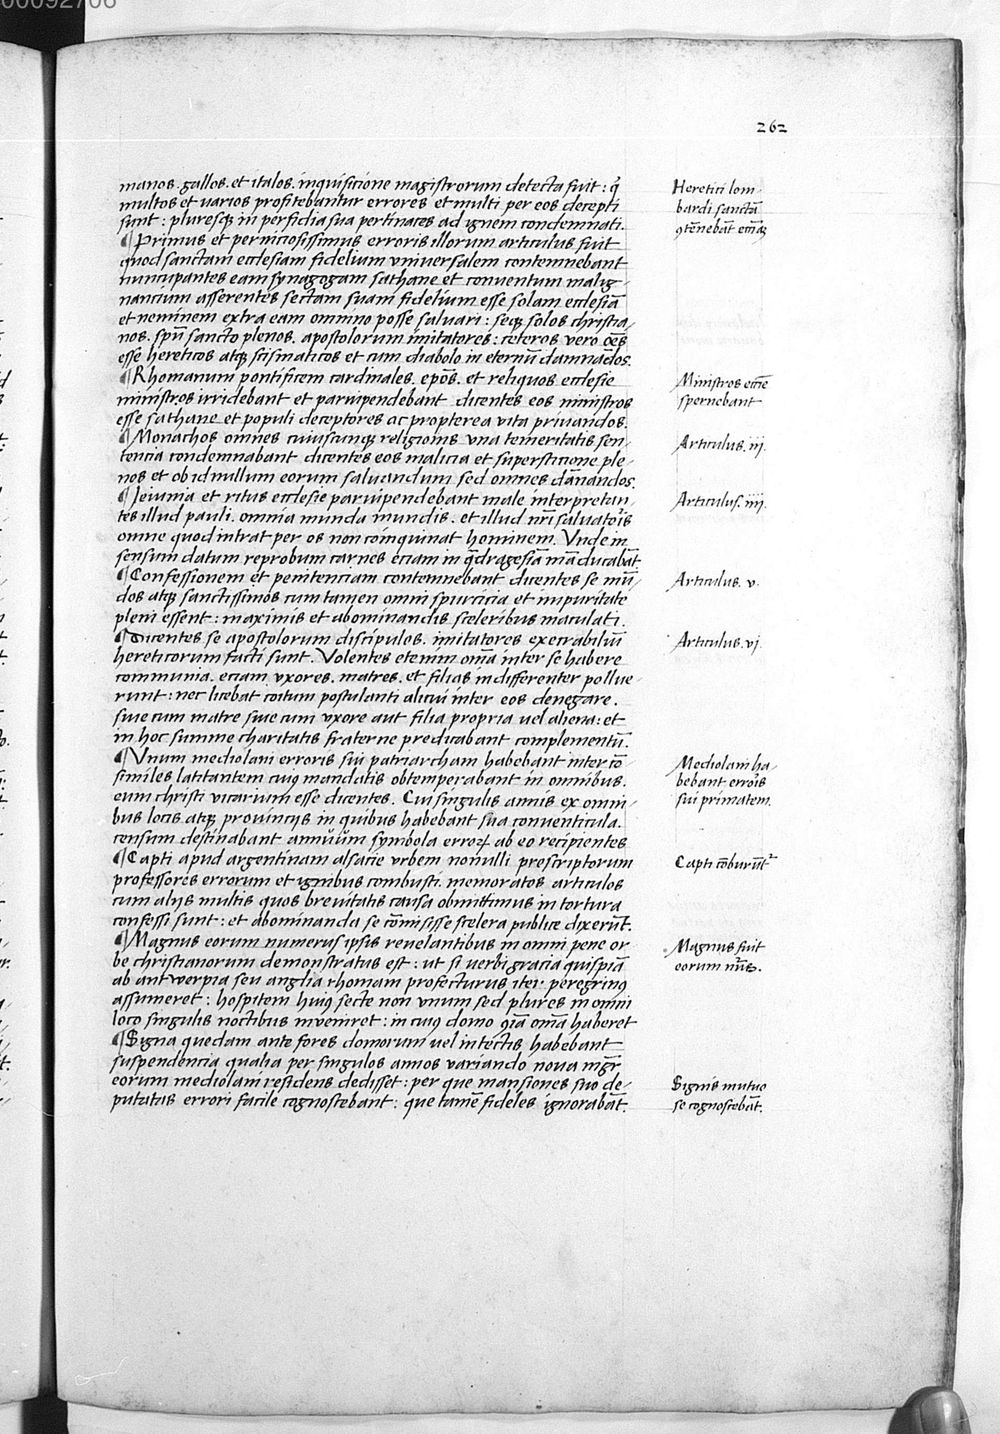 00092706
262
manos. gallos. et italos. inquisicione magistrorum detecta fuit: q̃
multos et uarios profitebantur errores et multi per eos decepti
sunt: pluresqꝫ in perfidia sua pertinaces ad ignem condemnati.
¶ Primus et perniciosissimus erroris illorum articulus fuit
quod sanctam ecclesiam fidelium vniuersalem contemnebant
nuncupantes eam synagogam sathane et conuentum malig-
nancium asserentes sectam suam fidelium esse solam ecclesiã
et neminem extra eam omnino posse saluari: seqꝫ solos christia-
nos. spũ sancto plenos. apostolorum imitatores: ceteros vero oẽs
esse hereticos atqꝫ scismaticos et cum diabolo in eternũ damnãdos.
¶ Rhomanum pontificem cardinales. epõs. et reliquos ecclesie
ministros irridebant et paruipendebant dicentes eos ministros
esse sathane et populi deceptores ac propterea vita priuandos.
¶ Monachos omnes cuiuscunqꝫ religionis vna temeritatis sen-
tencia condemnabant dicentes eos malicia et supersticione ple-
nos et ob id nullum eorum saluandum sed omnes dãnandos.
¶ Ieiunia et ritus ecclesie paruipendebant male interpretan-
tes illud pauli. omnia munda mundis. et illud nr̃i saluatoris
omne quod intrat per os non coinquinat hominem. Vnde in
sensum datum reprobum carnes eciam in q̃dragesiã mãducabãt
¶ Confessionem et penitenciam contemnebant dicentes se mũ-
dos atqꝫ sanctissimos cum tamen omni spurcicia et impuritate
pleni essent: maximis et abominandis sceleribus maculati.
¶ Dicentes se apostolorum discipulos. imitatores execrabiliũ
hereticorum facti sunt. Volentes etenim om̃a inter se habere
communia. eciam vxores. matres. et filias indifferenter pollue-
runt: nec licebat coitum postulanti alicui inter eos denegare.
siue cum matre siue cum vxore aut filia propria uel aliena: et
in hoc summe charitatis fraterne predicabant complementũ.
¶ Vnum mediolani erroris sui patriarcham habebant inter cõ-
similes latitantem cuiꝯ mandatis obtemperabant in omnibus.
eum christi vicarium esse dicentes. Cui singulis annis ex omni-
bus locis atqꝫ prouincijs in quibus habebant sua conuenticula.
censum destinabant annuum symbola erroꝝ ab eo recipientes
¶ Capti apud argentinam alsacie vrbem nõnulli prescriptorum
professores errorum et ignibus combusti. memoratos articulos
cum alijs multis quos breuitatis causa obmittimus in tortura
confessi sunt: et abominanda se cõmisisse scelera publice dixerũt.
¶ Magnus eorum numerus ipsis reuelantibus in omni pene or-
be christianorum demonstratus est: ut si verbi gracia quispiã
ab antwerpia seu anglia rhomam profecturus iter peregrinꝯ
assumeret: hospitem huiꝯ secte non vnum sed plures in omni
loco singulis noctibus inueniret: in cuiꝯ domo ꝯia om̃a haberet
¶ Signa quedam ante fores domorum uel in tectis habebant
suspendencia qualia per singulos annos variando noua mgr̃
eorum mediolani residens dedisset: per que mansiones suo de-
putatas errori facile cognoscebant: que tamẽ fideles ignorabãt.
Heretici lom-
bardi sanctã
ꝯtẽnebãt ecciaꝫ
Ministros eccie
spernebant
Articulus. iij.
Articulus. iiij.
Articulus. v.
Articulus. vj.
Mediolani ha-
bebant erroris
sui primatem.
Capti cõburũtr
Magnus fuit
eorum nũs.
Signis mutuo
se cognoscebãt.